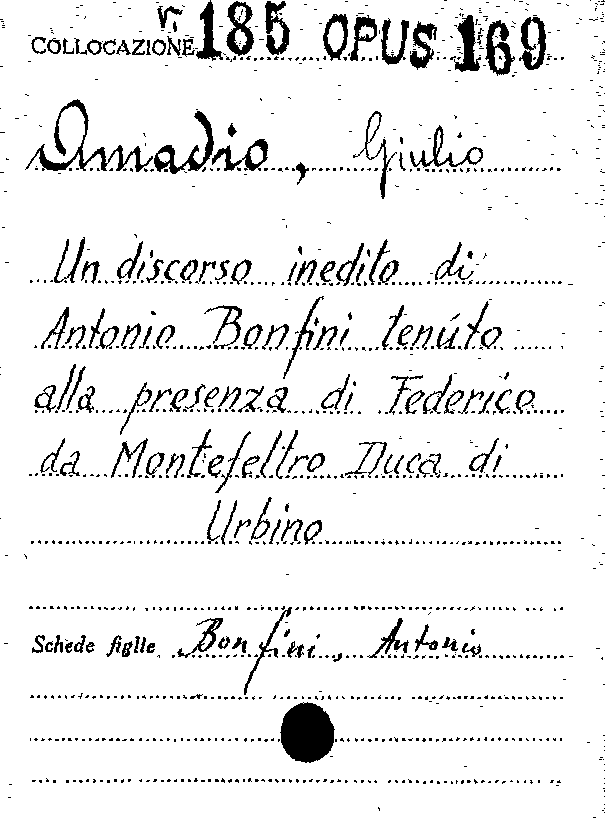 COLLOCAZIONE V. 185 OPUS 169
Amadio, Giulio
Un discorso inedito di
Antonio Bonfini tenúto
alla presenza di Federico
da Montefeltro Duca di
Urbino
Schede figlie Bonfini, Antonio